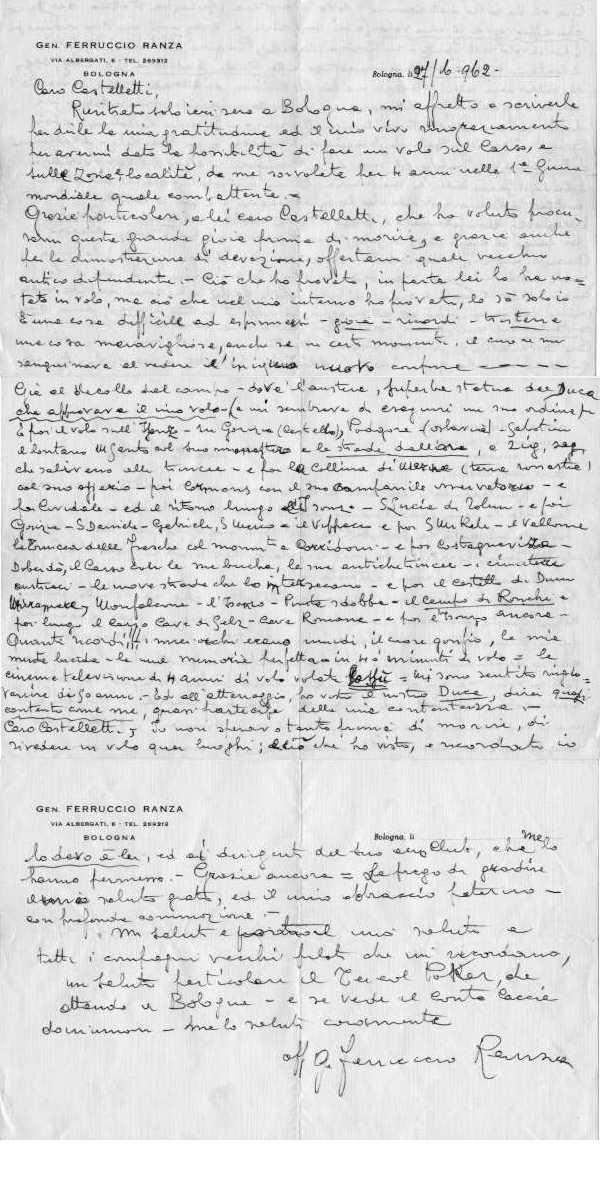 GEN. FERRUCCIO RANZA
VIA ALBERGATI, 6 - TEL. 269312
BOLOGNA
Bologna, li 27/6-962-
Caro Castelletti,
Rientrato solo ieri sera a Bologna, mi affretto a scriverle
per dirle la mia gratitudine ed il mio vivo ringraziamento
per avermi dato la possibilità di fare un volo sul Carso, e
sulle zone e località, da me sorvolate per 4 anni nella 1ª Guerra
mondiale quale combattente. -
Grazie particolari, a lei caro Castelletti, che ha voluto procu-
rarmi questa grande gioia prima di morire, e grazie anche
per la dimostrazione di devozione, offertami quale vecchio
antico dipendente. - Ciò che ho provato, in parte lei lo ha no=
tato in volo, ma ciò che nel mio interno ho provato, lo so solo io
È una cosa difficile ad esprimersi - gioia - ricordi - tristezza
una cosa meravigliosa, anche se in certi momenti, il cuore mi
sanguinava al vedere l'iniquo nuovo confine - - - -
Già al decollo dal campo - dove l'austera, superba statua del Duca
che approvava il mio volo - (e mi sembrava di eseguire un suo ordine) -
E poi il volo sull'Isonzo - su Gorizia (Castello), Podgora (Oslavia) - Sabotino
il lontano M Santo col suo monastero e le strade dall'aria, a zig, zag,
che salivano alle trincee - e poi la collina di Medea
col suo - poi Cormons con il suo campanile - e
poi Cividale - ed il ritorno lungo l'Isonzo - S Lucia di Tolmino - e poi
Gorizia - S Daniele - Gabriele, S Marco - il Vippacco e poi S Michele - il Vallone
la trincea delle Frasche col monumento Corridoni - e poi Castagnevizza -
Doberdò, il Carso con le sue buche, le sue antiche trincee - i cimiteri
austriaci - le nuove strade che lo intersecano - e poi il Castello di Duino
Miramare, Monfalcone - l'Isonzo - Punta Sdobba - il campo di Ronchi e
poi lungo il Carso Cave di Selz - Cave Romane - e poi l'Isonzo ancora -
Quanti ricordi!!! i miei occhi erano umidi, il cuore gonfio, la mia
mente lucida - le mie memorie perfette - in 40 minuti di volo = la
cine=televisione di 4 anni di volo - Mi sono sentito ringio-
vanire di 50 anni. - Ed all'atterraggio, ho visto il nostro Duca, direi quasi
contento come me, quasi partecipe della mia contentezza. -
Caro Castelletti, Io non speravo tanto prima di morire, di
rivedere in volo quei luoghi; ciò che ho visto, e ricordato io
GEN. FERRUCCIO RANZA
VIA ALBERGATI, 6 - TEL. 269312
BOLOGNA
Bologna, li
lo devo a lei, ed ai dirigenti del suo aero Club, che lo
hanno permesso. - Grazie ancora = La prego di gradire
il mio saluto grato, ed il mio abbraccio fraterno -
con profonda commozione. -
Mi saluti e porti il mio saluto a
tutti i compagni vecchi piloti che mi ricordano,
un saluto particolare il Ten col Poker, che
attendo a Bologna - e se vede il Conte Caccia
dominioni - me lo saluti caramente
aff Ferruccio Ranza